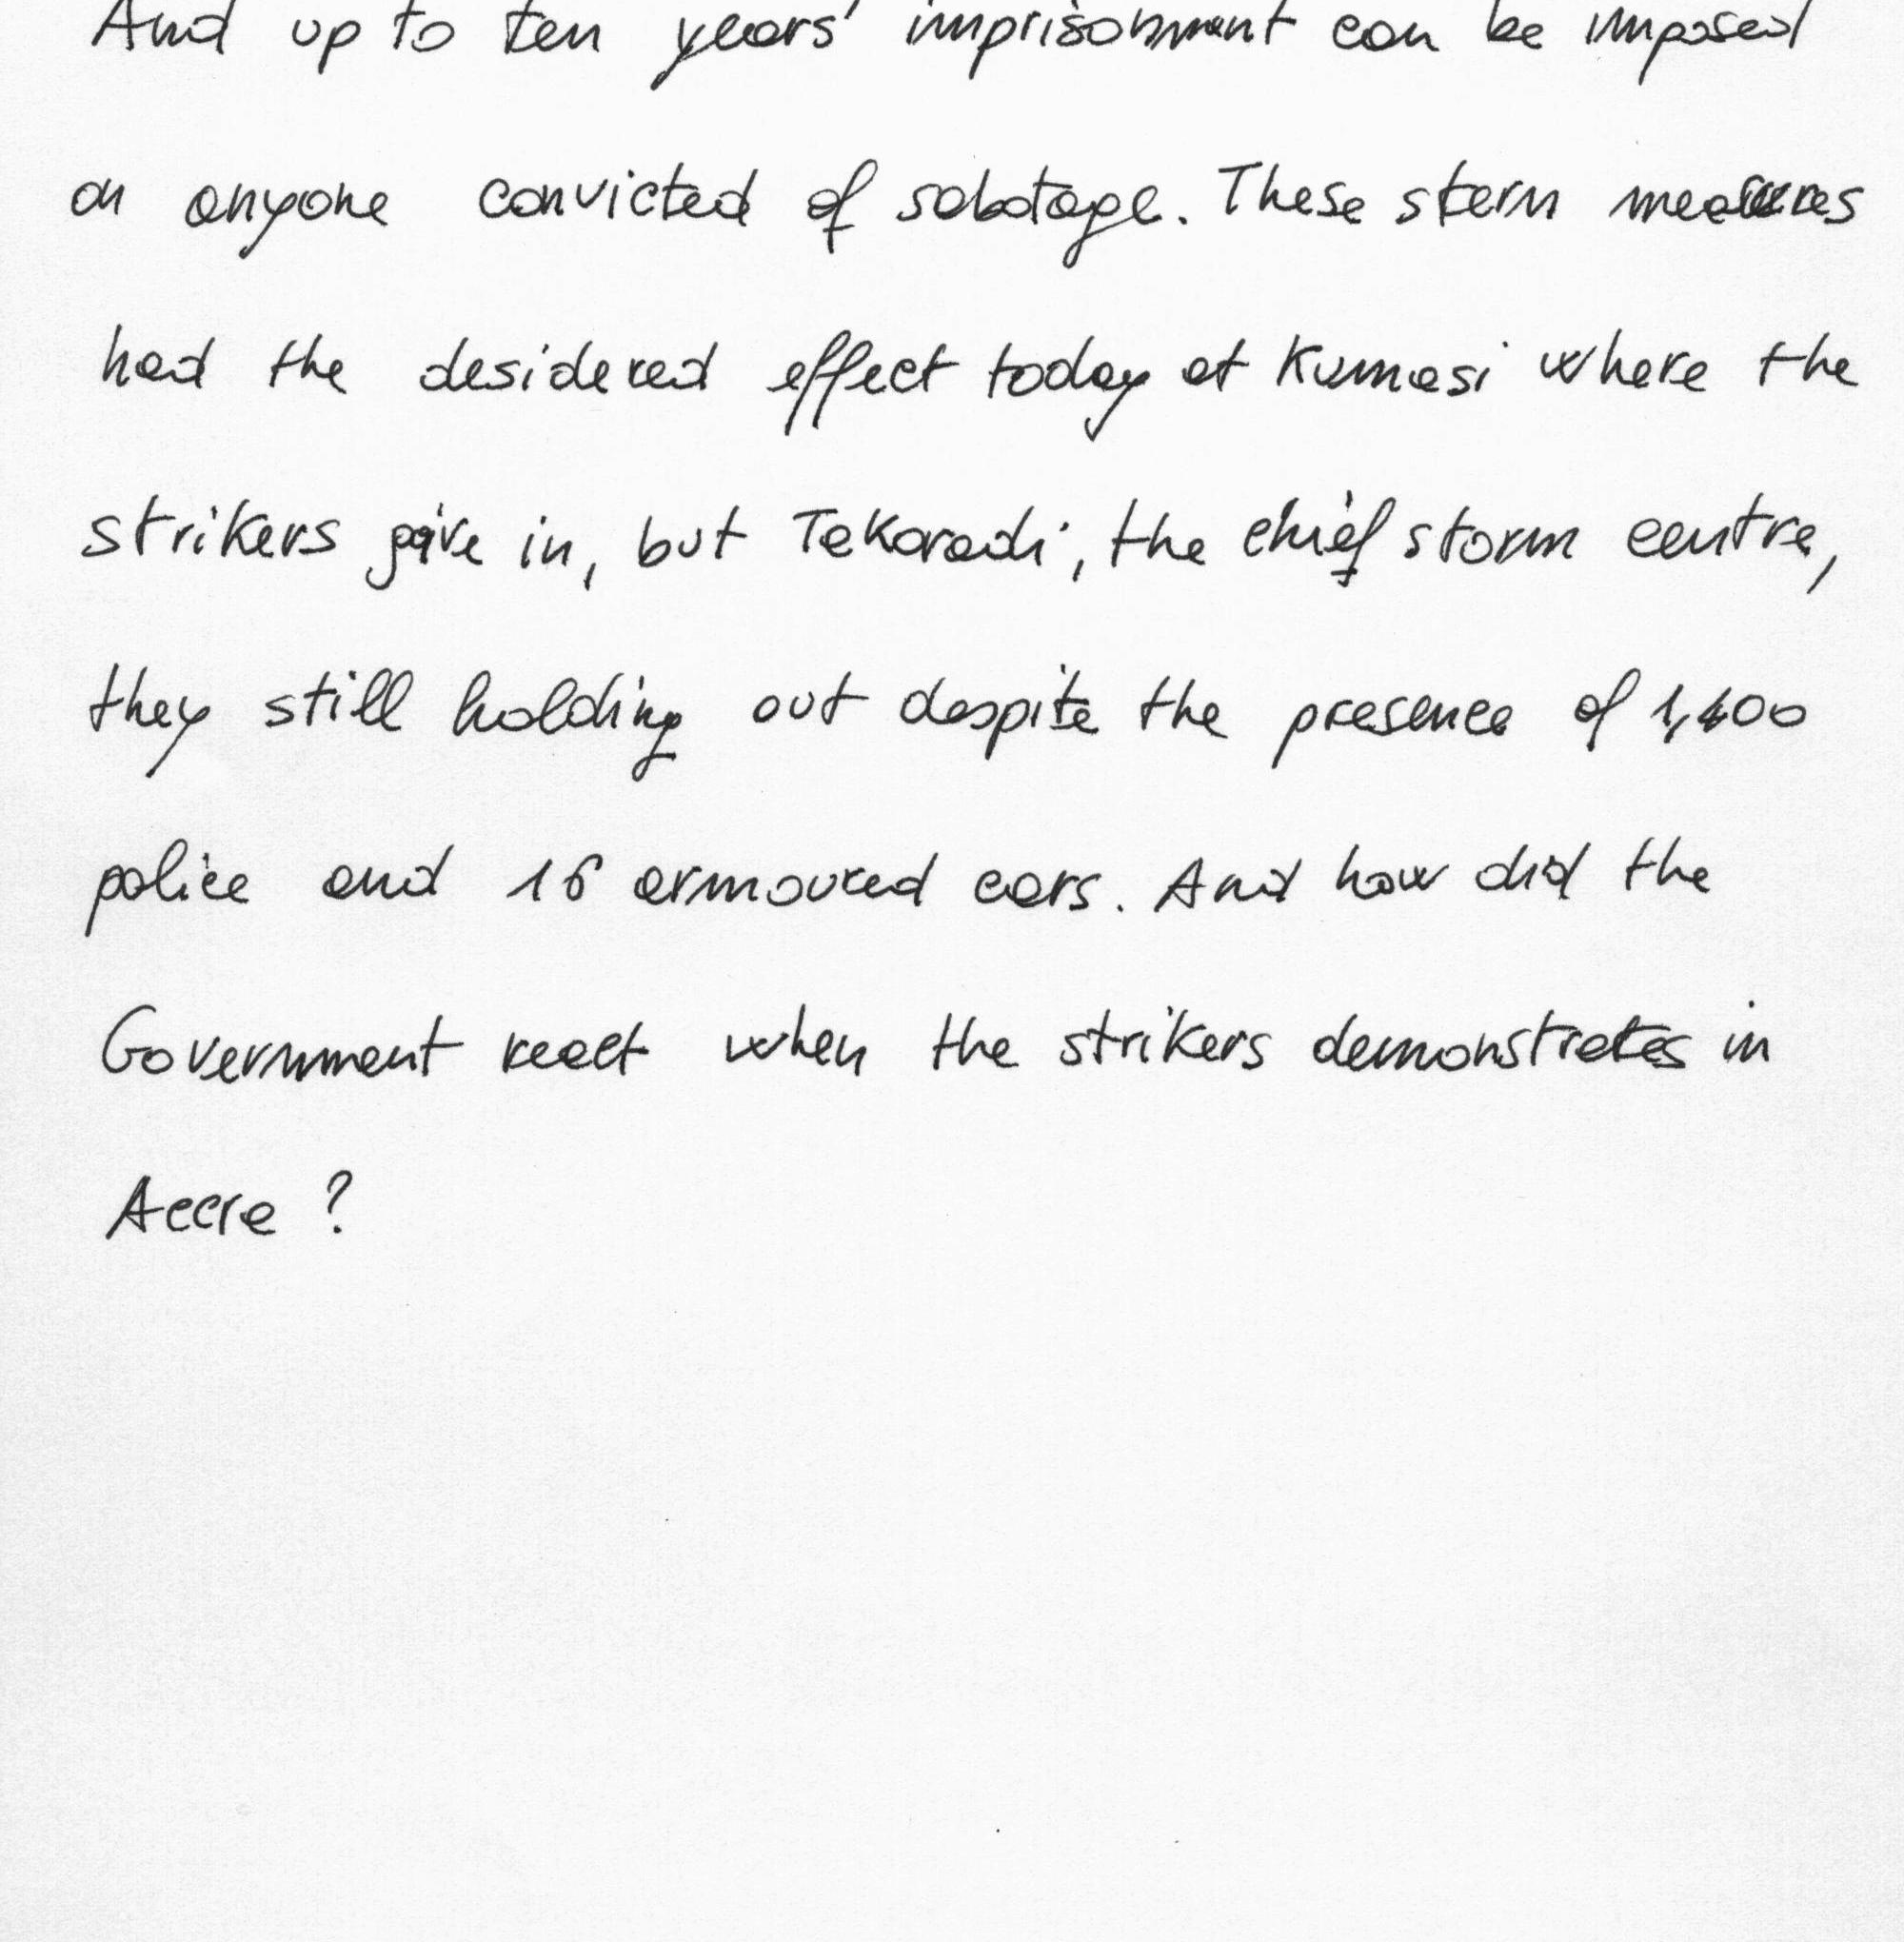 And up to ten years' imprisonment can be imposed
on anyone convicted of sabotage. These stern measures
had the desidered effect today at Kumasi where the
strikers give in, but Takoradi, the chief storm centre,
they still holding out despite the presence of 1,400
police and 16 armoured cars. And how did the
Government react when the strikers demonstrates in
Accra ?